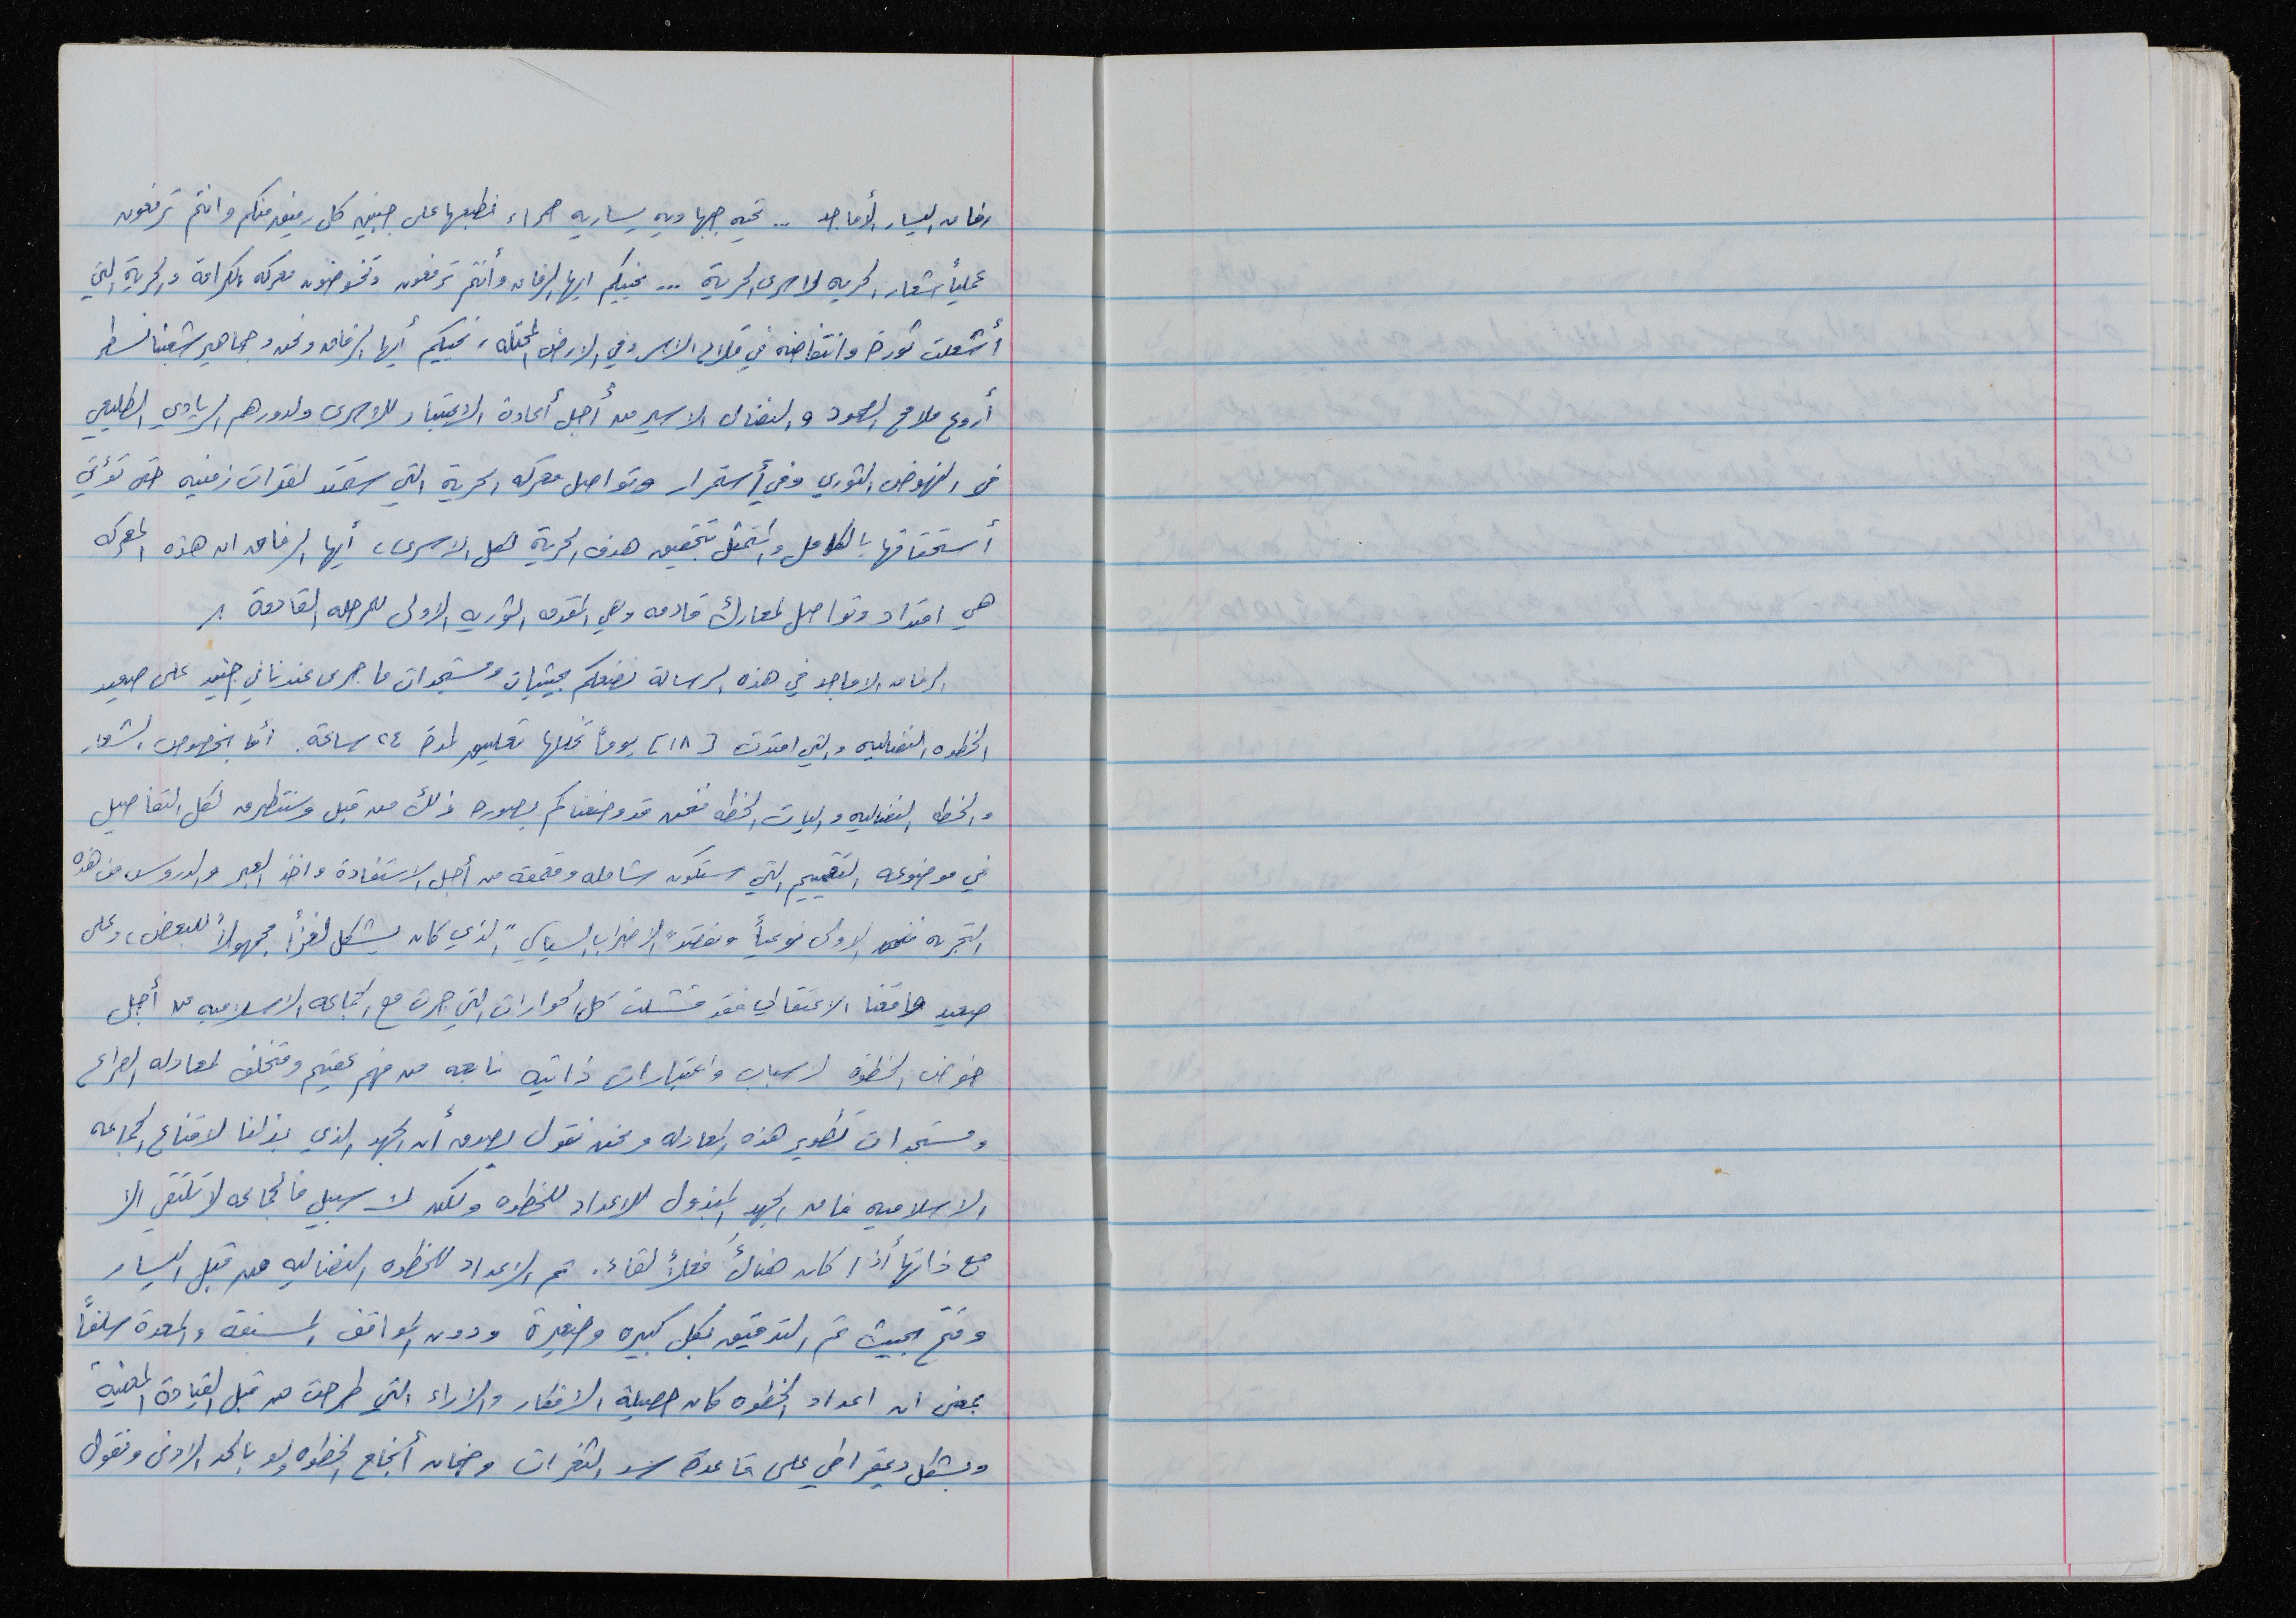 رفاق اليسار الأماجد ... تحيه جبهاويه يساريه حمراء نطبعها على جبين كل رفيق منكم وانتم ترفعون
عملياً شعار الحريه لاسرى الحرية ... نحييكم ايها الرفاق وأنتم ترفعون وتخوضون معركه الكرامة والحرية التي
أشعلت ثورة وانتفاضه في قلاع الاسر وفي الارض المحتله، نحييكم أيها الرفاق ونحن وجماهير شعبنا نسطر
أروع ملامح الصمود والنضال الاسير من أجل أعادة الاعتبار للاسرى ولدورهم الريادي الطليعي
في النهوض الثوري وفي أستمرار وتواصل معركه الحرية التي ستمتد لفترات زمنيه حتى تؤتي
أستحقاقها بالكامل والمتمثل بتحقيق هدف الحرية لكل الاسرى، أيها الرفاق ان هذه المعركه
هي امتداد وتواصل لمعارك قادمه وهي المقدمه الثوريه الاولى للمرحله القادمة
الرفاق الاماجد في هذه الرسالة نضعكم بحيثيات ومستجدات ما جرى عندنا في جنيد على صعيد
الخطوه النضاليه والتي امتدت [١٨] يوماً تخللها تعليق لمدة ٢٤ ساعة. أما بخصوص الشعار
والخطه النضاليه واليات الخطه فنحن قد وضعناكم بصورة ذلك من قبل وسنتطرق لكل التفاصيل
في موضوعه التقييم التي ستكون شامله ومعمقه من أجل الاستفادة واخذ العبر والدروس من هذه
التجربه الاولى نوعياً ونقصد "الاضراب السياسي" الذي كان يشكل لغزاً مجهولاً للبعض، وعلى
صعيد واقعنا الاعتقالي فقد فشلت كل الحوارات التي جرت مع الجماعه الاسلاميه من أجل
خوض الخطوة لاسباب واعتبارات ذاتيه نابعه من فهم عقيم ومتخلف لمعادله الصراع
ومستجدات تطوير هذه المعادله ونحن نقول بصدق أن الجهد الذي بذلنا لاقناع الجماعه
الاسلاميه فاق الجهد المبذول للاعداد للخطوه ولكن لا سبيل فالجماعه لا تلتقي الا
مع ذاتها أذا كان هناك فعلاً لقاء. تم الاعداد للخطوه النضاليه من قبل اليسار
وفتح بحيث تم التدقيق بكل كبيره وصغيرة ودون المواقف المسبقه والمعدة سلفاً
بمعنى ان اعداد الخطوه كان حصيلة الافكار والاراء التي طرحت من قبل القيادة المعنية
وبشكل ديمقراطي على قاعدة سد الثغرات وضمان أنجاح الخطوه ولو بالحد الادنى ونقول